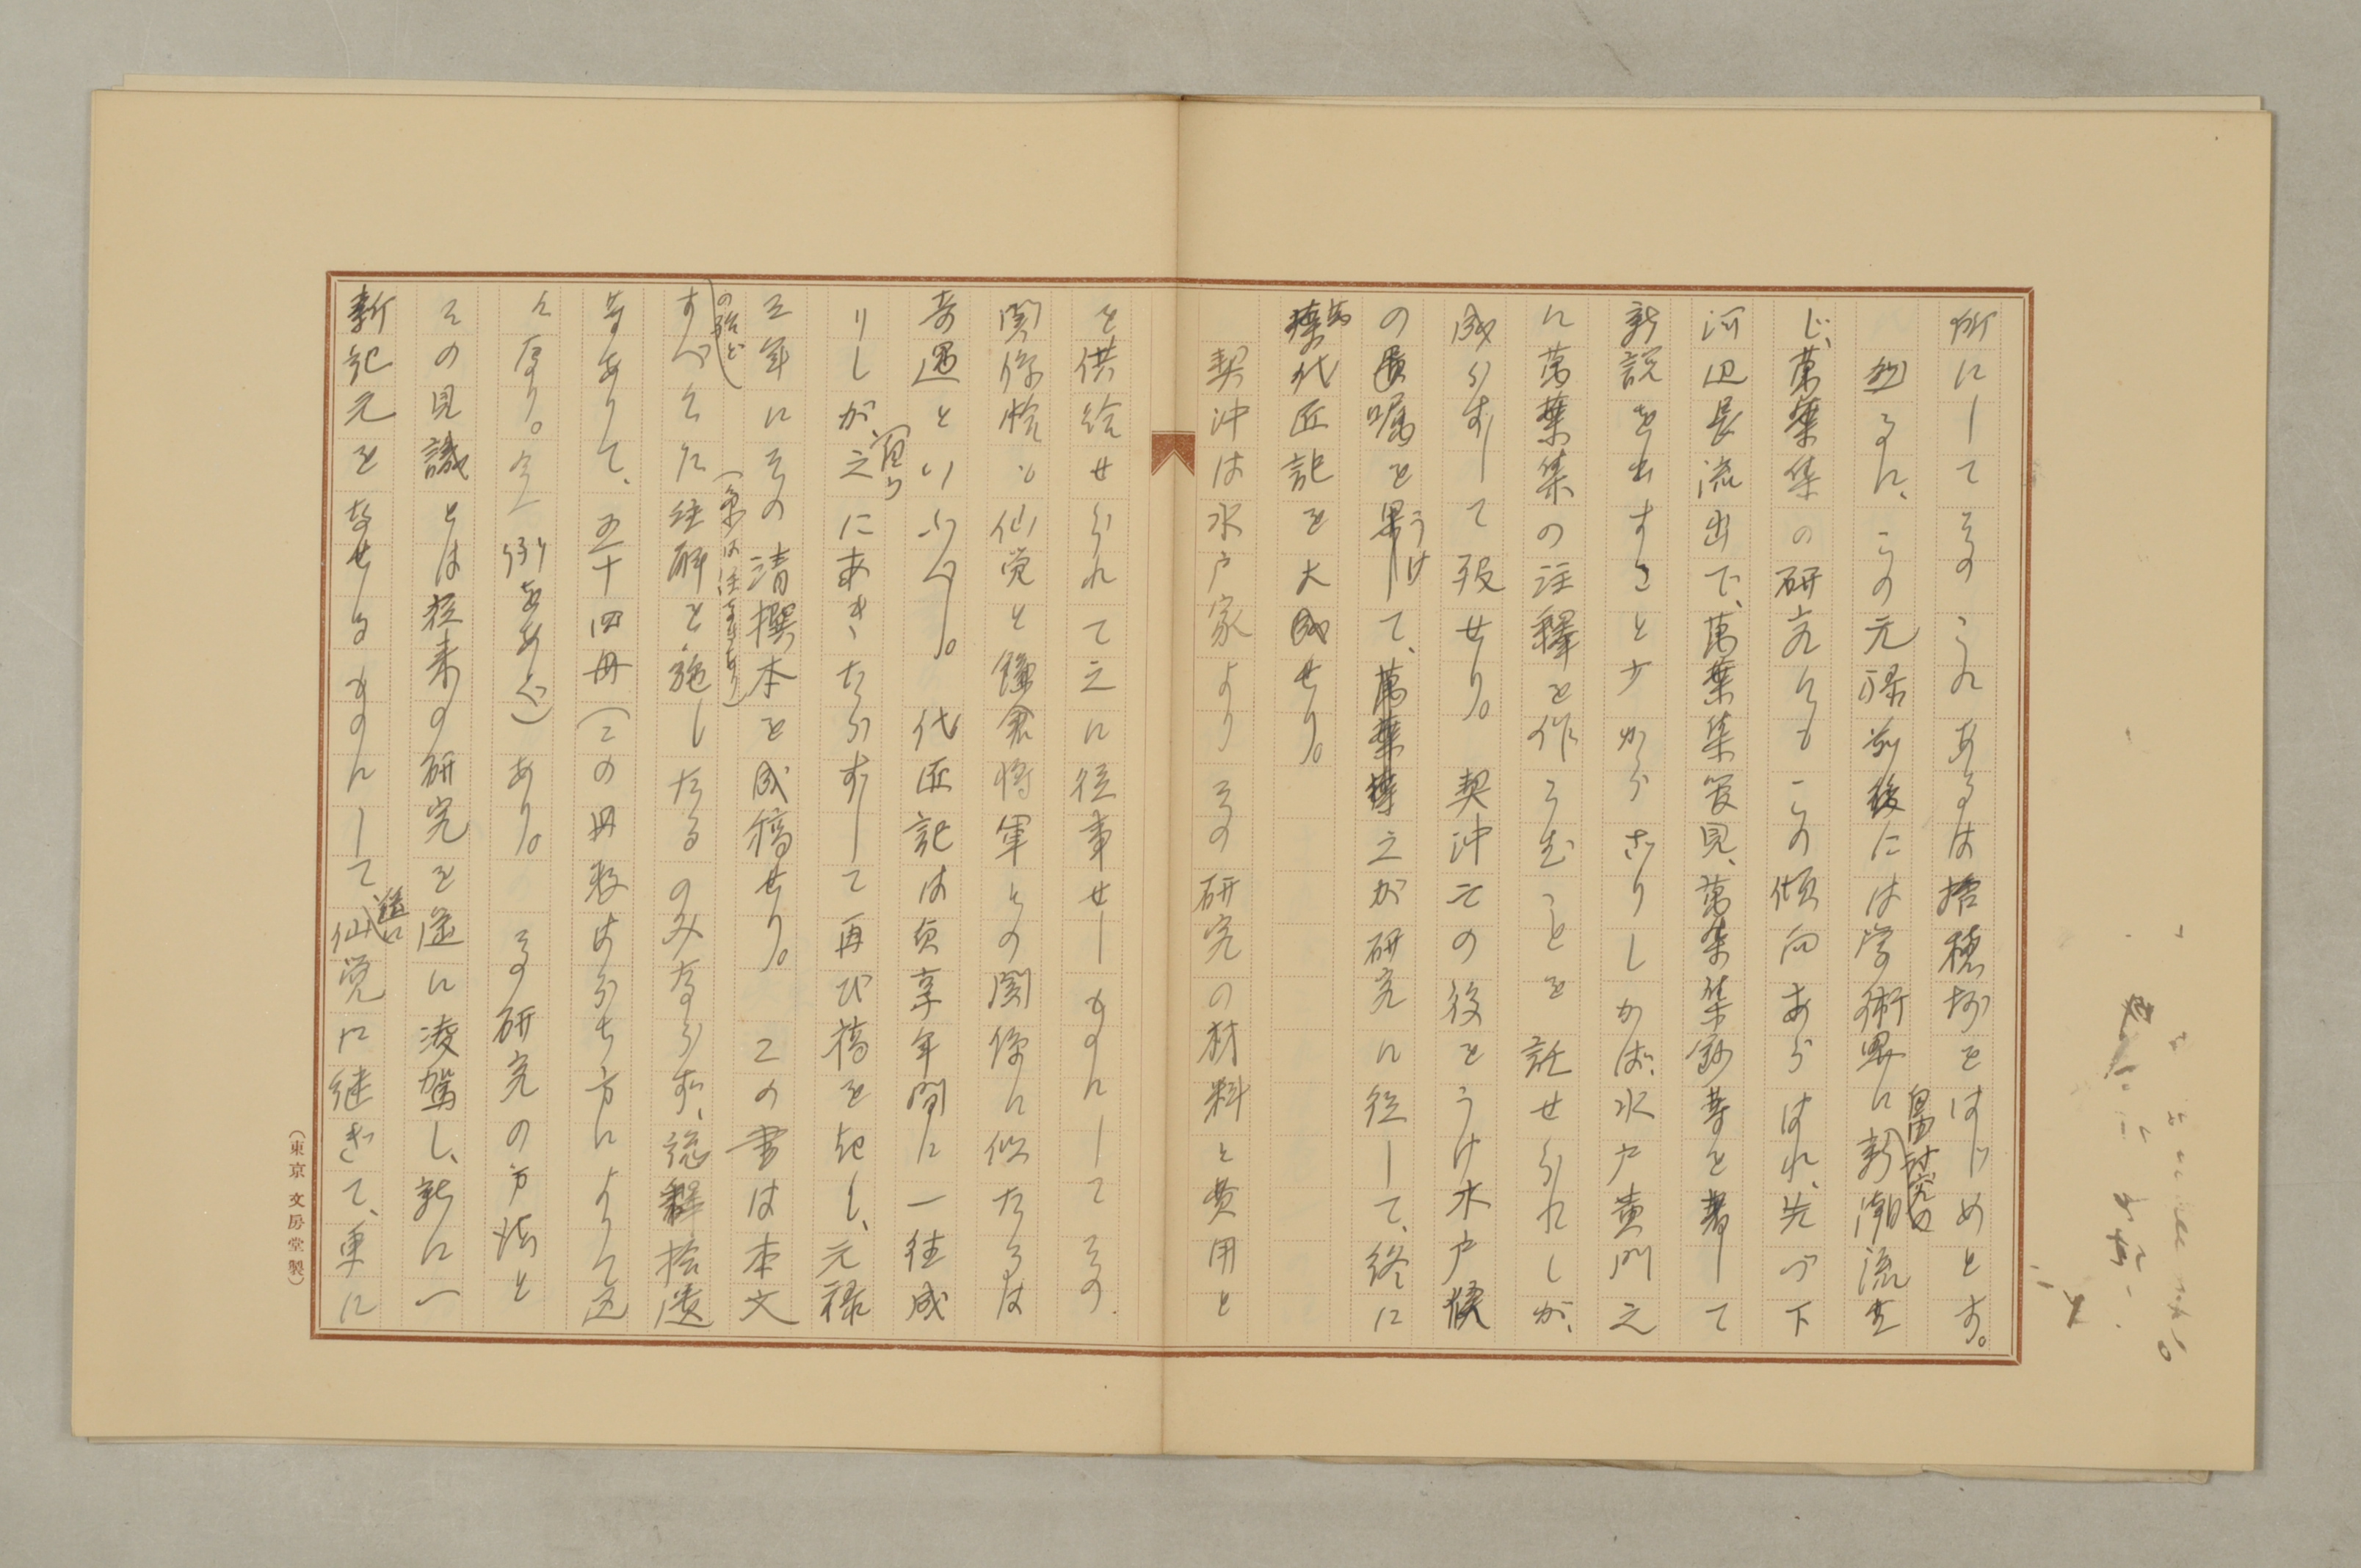 所にしてその これ あるは 拾穂抄をはじめとす。
然るに、この元禄前後には学術界に新潮流生
じ、萬葉集の研究にもこの傾向あらはれ、先づ下
河辺長流出で、萬葉集管見、萬葉集鈔等を著して
新説を出すこと少からざりしかば、水戸黄門之
に萬葉集の注釋を作らむことを託せられしが、
成らずして歿せり。契沖その後をうけ水戸侯
の嘱をうけて、萬葉之が研究に従して、終に
代匠記を大成せり。
契沖は水戸家よりその研究の材料と費用と
を供給せられて之に従事せしものにしてその
関係恰も仙覚と鎌倉将軍との関係に似たるは
奇遇といふべし。代匠記は貞享年間に一往成
りしが、之にあきたらずして再び稿を起し、元禄
三年にその清撰本を成稿せり。この書は本文
の殆ど
すべてに注解を施したるのみならず、総釋拾遺
等ありて、五十四冊(この冊数はわち方によりて
なり。)あり。その研究の方法と
その見識とは従来の研究を遥に凌駕し、新に一
新紀元をなせるものにして、仙覚に継ぎて、更に
(東京 文房堂製)